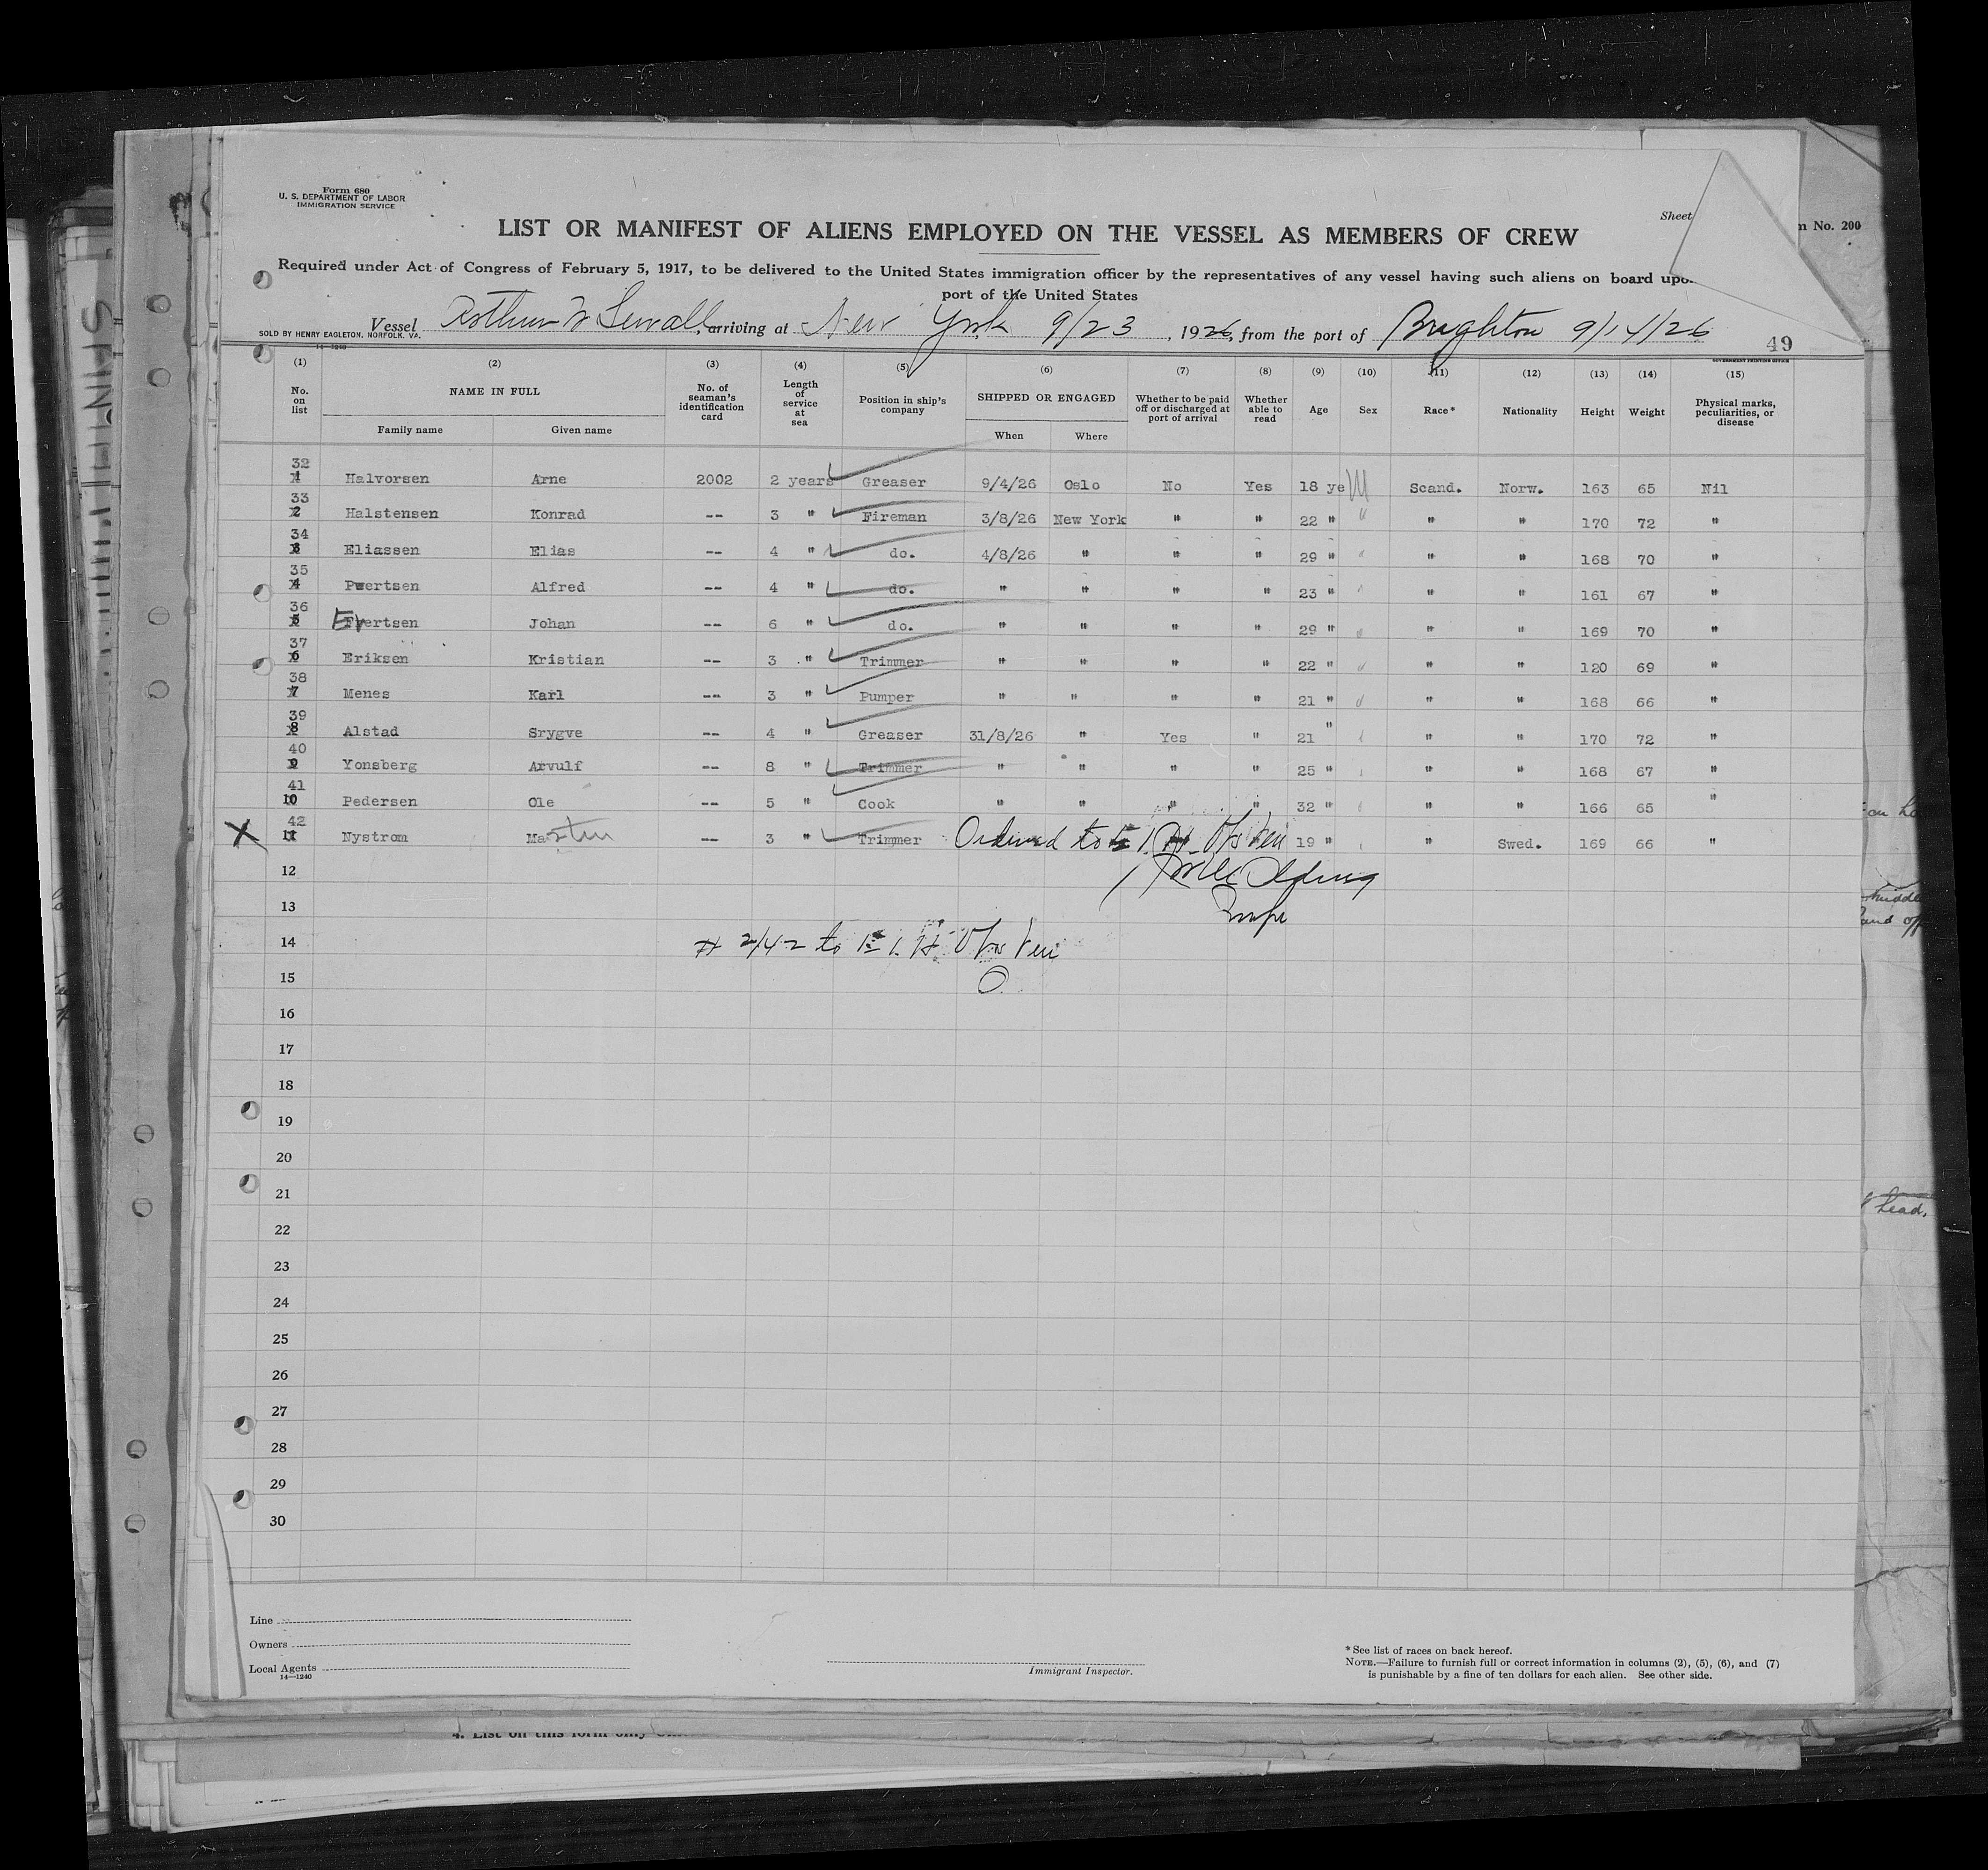 Form 680
U. S. DEPARTMENT OF LABOR
IMMIGRATION SERVICE
Sheet
n No. 200
LIST OR MANIFEST OF ALIENS EMPLOYED ON THE VESSEL AS MEMBERS OF CREW
Required under Act of Congress of February 5, 1917, to be delivered to the United States immigration officer by the representatives of any vessel having such aliens on board upo
port of the United States
Vessel Arthur W Sewall, arriving at New York 9/23, 1926, from the port of Brighton 9/14/26
SOLD BY HENRY EAGLETON, NORFOLK, VA.
49
14—1240
GOVERNMENT PRINTING OFFICE
(1) (2) (3) (4) (5) (6) (7) (8) (9) (10) (11) (12) (13) (14) (15)
No. on list NAME IN FULL No. of seaman's identification card Length of service at sea Position in ship's company SHIPPED OR ENGAGED Whether to be paid off or discharged at port of arrival Whether able to read Age Sex Race* Nationality Height Weight Physical marks, peculiarities, or disease
Family name Given name When Where
32 1 Halvorsen Arne 2002 2 years Greaser 9/4/26 Oslo No Yes 18 ye M Scand. Norw. 163 65 Nil
33 2 Halstensen Konrad -- 3 " Fireman 3/8/26 New York " " 22 " " " " 170 72 "
34 3 Eliassen Elias -- 4 " do. 4/8/26 " " " 29 " " " " 168 70 "
35 4 Pwertsen Alfred -- 4 " do. " " " " 23 " " " 161 67 "
36 5 Evertsen Johan -- 6 " do. " " " " 29 " " " " 169 70 "
37 6 Eriksen Kristian -- 3 " Trimmer " " " " 22 " " " " 120 69 "
38 7 Menes Karl -- 3 " Pumper " " " " 21 " " " " 168 66 "
39 8 Alstad Srygve -- 4 " Greaser 31/8/26 " Yes " 21 " " " 170 72 "
40 9 Yonsberg Arvulf -- 8 " Trimmer " " " " 25 " " " 168 67 "
41 10 Pedersen Ole -- 5 " Cook " " " " 32 " " " 166 65 "
X 42 11 Nystrom Martin -- 3 " Trimmer Ordered to E I H Obs Ven 19 " " Swed. 169 66 "
12
13 Insp
14 # 2/42 to E. I. H. Obs Ven
15
16
17
18
19
20
21
22
23
24
25
26
27
28
29
30
Line
Owners
Local Agents
14—1240
Immigrant Inspector.
*See list of races on back hereof.
NOTE.—Failure to furnish full or correct information in columns (2), (5), (6), and (7)
is punishable by a fine of ten dollars for each alien. See other side.
head.
4. List on this form only